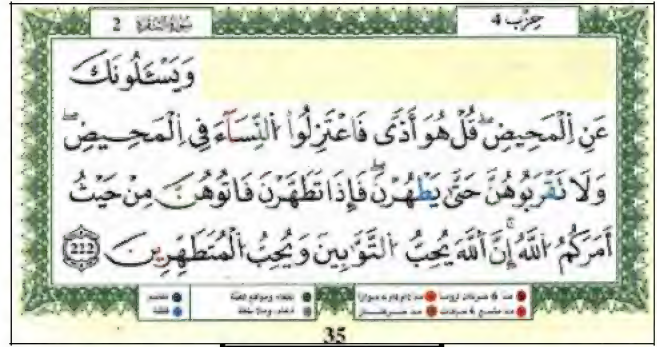 سورة البقرة 2
حزب 4
وَيَسْـَٔلُونَكَ
عَنِ اِ۬لْمَحِيضِۖ قُلْ هُوَ أَذىٗ فَاعْتَزِلُواْ اُ۬لنِّسَآءَ فِے اِ۬لْمَحِيضِۖ
وَلَا تَقْرَبُوهُنَّ حَتَّىٰ يَطْهُرْنَۖ فَإِذَا تَطَهَّرْنَ فَاتُوهُنَّ مِنْ حَيْثُ
أَمَرَكُمُ اُ۬للَّهُۚ إِنَّ اَ۬للَّهَ يُحِبُّ اُ۬لتَّوَّٰبِينَ وَيُحِبُّ اُ۬لْمُتَطَهِّرِينَ 222
35